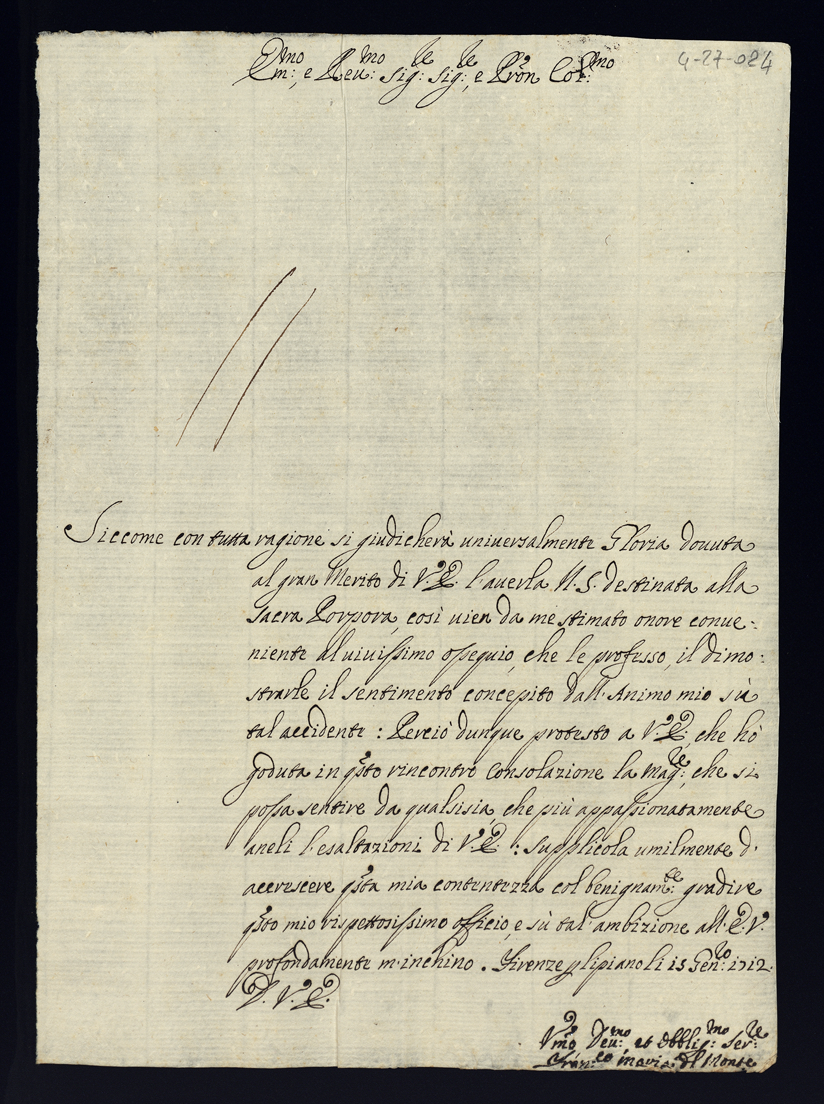 4-27-024
Em:mo, e Reu:mo Sig:re Sig:re, e Pron Col:mo
Siccome con tutta ragione si giudicherà uniuersalmente Gloria douuta
al gran Merito di V.E. l'auerla N.S. destinata alla
Sacra Porpora, così uien da me stimato onore conue-
niente al uiuissimo ossequio, che le professo, il dimo-
strarle il sentimento concepito dall'Animo mio sù
tal accidente: Perciò dunque protesto a V.E., che hò
goduta in qsto rincontro Consolazione la mag:re, che si
possa sentire da qualsisia, che più appassionatamente
aneli l'esaltazioni di V.E.: supplicola umilmente d'
accrescere qsta mia contentezza col benignam:te gradire
qsto mio rispettosissimo officio, e sù tal' ambizione all'E.V.
profondamente m'inchino. Firenze 15 Gen:ro 1712.
D.V.E.
Vmo Deu:mo et Obblig:mo Ser:re
Fran:co Maria del Monte